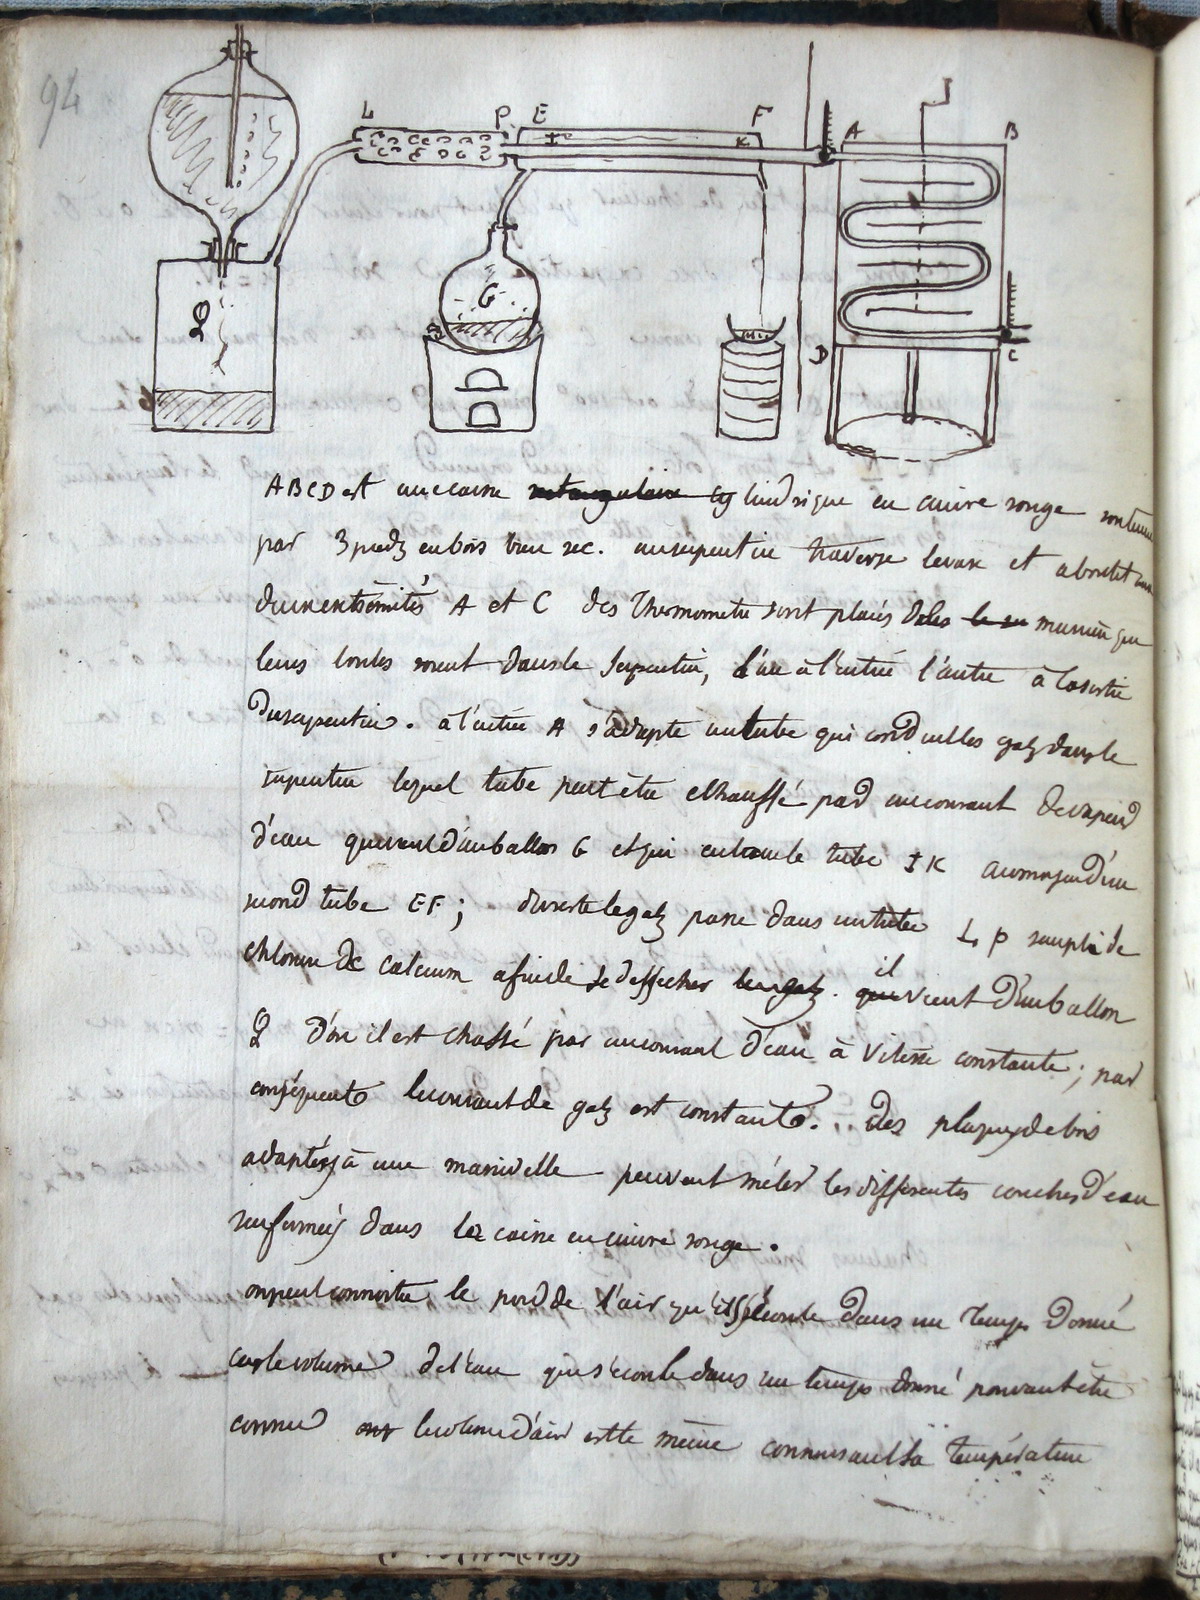 94
L P E F A B
I K
Q G D C
ABCD est une caisse rectangulaire cylindrique en cuivre rouge soutenue
par 3 piedz en bois bien sec. un serpentin traverse le vase et aboutit aux
deux extrémités A et C des Thermometre sont placés de le su maniere que
leurs boules soient dans le serpentin, l'un à l'entrée l'autre à la sortie
du serpentin. à l'entrée A s'adapte un tube qui conduit les gaz dans le
serpentin lequel tube peut être echauffé par un courant de vapeur
d'eau qui vient d'un ballon G et qui entoure le tube IK au moyen d'un
second tube EF; du reste le gaz passe dans un tube L P rempli de
chlorure de calcium afin de se dessecher le gaz. qui il vient d'un ballon
Q d'où il est chassé par un courant d'eau à vitesse constante; par
conséquent le courant de gaz est constant. des plaques de bois
adaptées à une manivelle peuvent mêler les differentes couches d'eau
renfermées dans la caisse en cuivre rouge.
on peut connoitre le poid de l'air qui s'écoule dans un temps donné
car le volume de l'eau qui s'écoule dans un temps donné pouvant être
connu le volume d'air est le même connoissant sa température